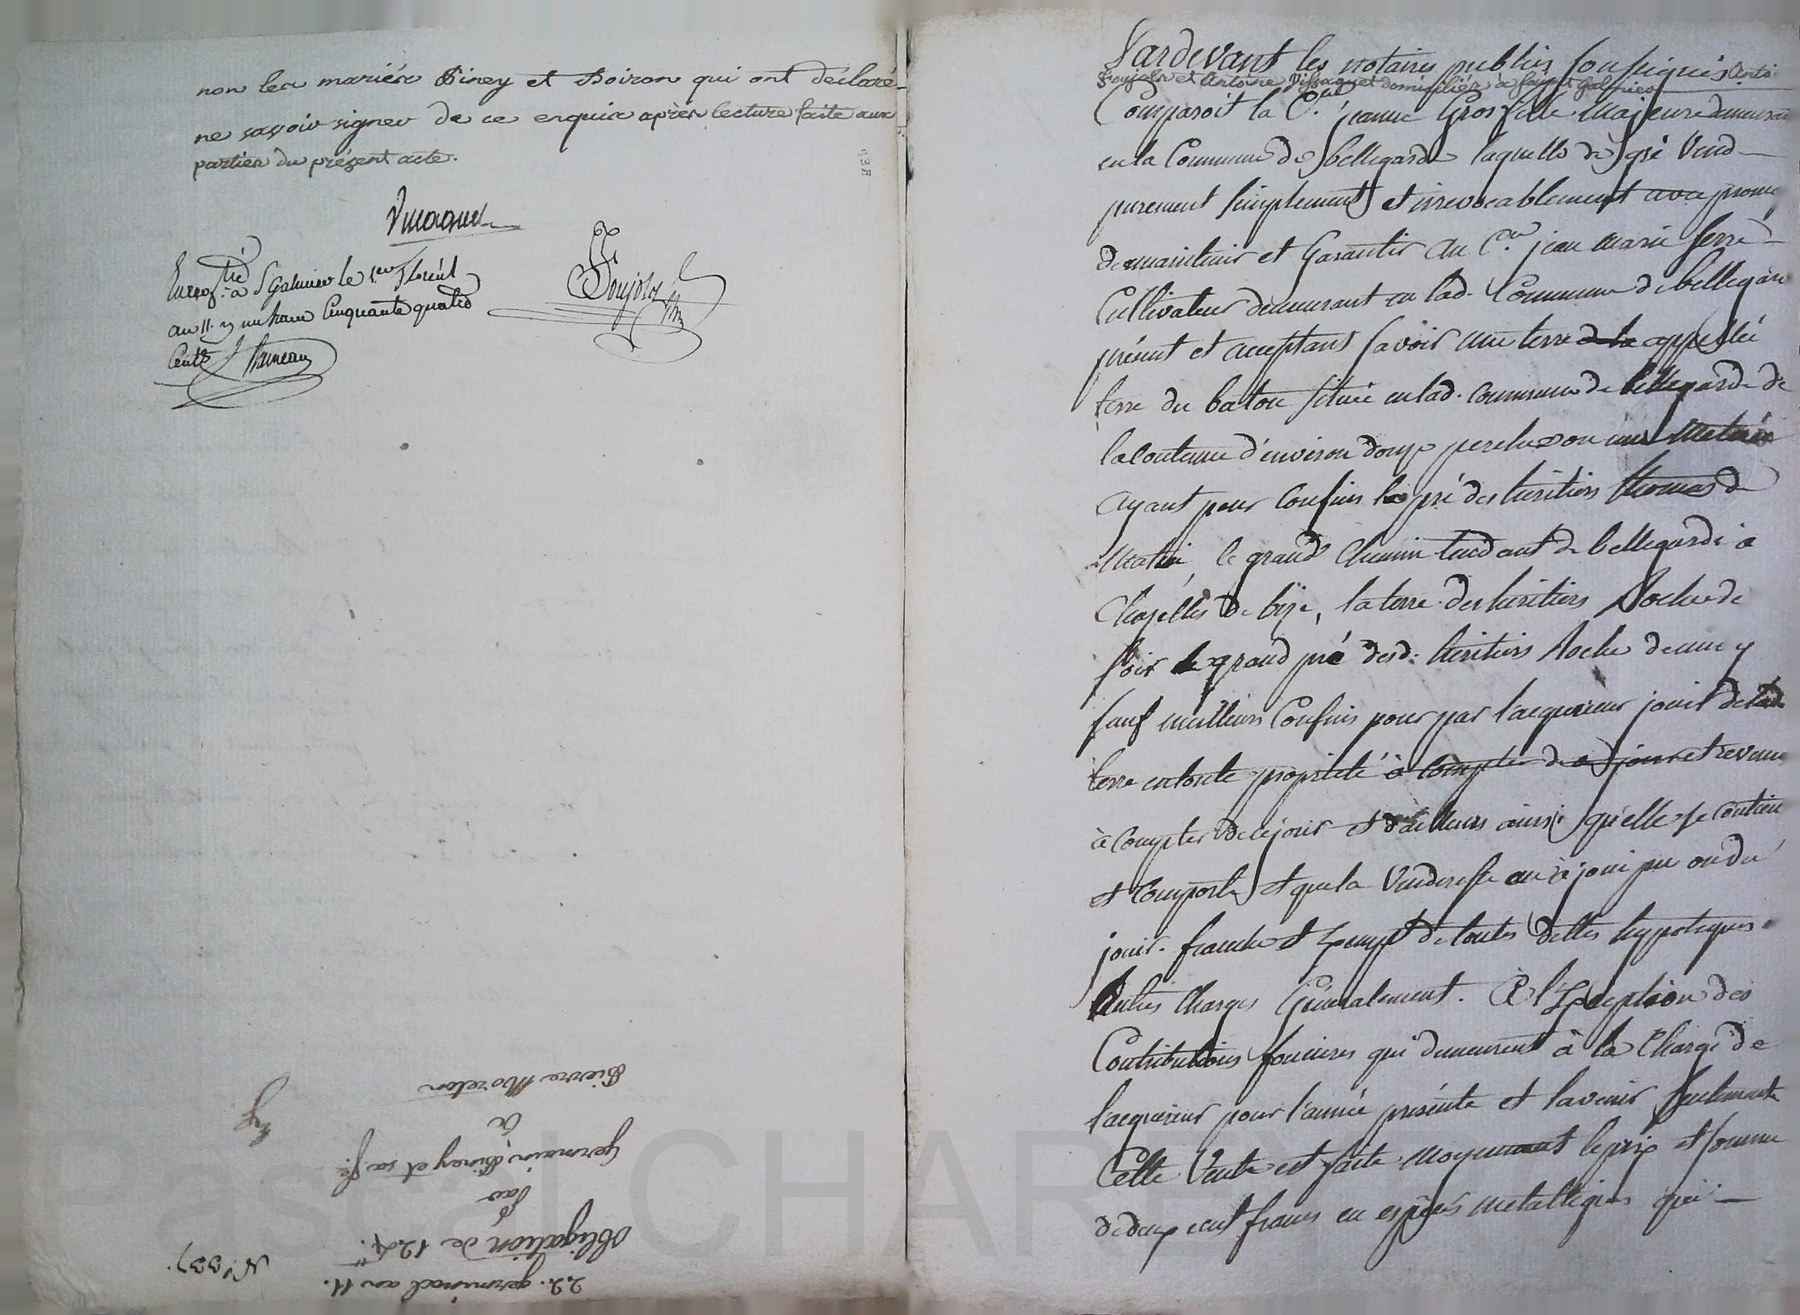 non les mariés Piney et Poiron qui ont déclaré
ne savoir signer de ce enquis après lecture faite aux
parties du présent acte.
Enregtré à St Galmier le 1er floréal
an 11. un franc cinquante quatre
Centes
Pierre Morelon
à
Germain Piney et sa fe
par
Obligation de 124 ₶.
22. germinal an 11.
N° 337.
Pardevant les notaires publics soussignés
Poujols et Antoine domiciliés à Saint Galmier
Comparoit la Cne jeanne Gros fille Majeure demeurant
en la Commune de bellegarde laquelle de gré Vend
purement simplement et irrevocablement avec promesse
de maintenir et garantir au Cen jean marie ferré
Cultivateur demeurant en lad. Commune de bellegarde
présent et acceptant savoir une terre de la appellée
terre du baton située en lad. commune de bellegarde de
la contenue d'environ douze perches ou une Meterée
ayant pour confins le pré des héritiers thomas de
Matin, le grand Chemin tendant de bellegarde à
Chazelles de bize, la terre des héritiers Roche de
soir le grand pré desd. héritiers Roche demi y
sauf meilleurs Confins pour par l'acquereur jouir de lad.
terre en toute propriété à compter de ce jour et revenu
à compter de ce jour et d'ailleurs ainsi qu'elle se contient
et comporte et que la Venderesse en a joui pu ou du
jouir. franche et Exempt de toutes dettes hypoteques
autres charges Généralement. à l'Exception des
Contributions foncieres qui demeurent à la Charge de
l'acquereur pour l'année présente et l'avenir seulement
Cette Vente est faite moyennant le prix et somme
de deux cent francs en espèces metalliques que